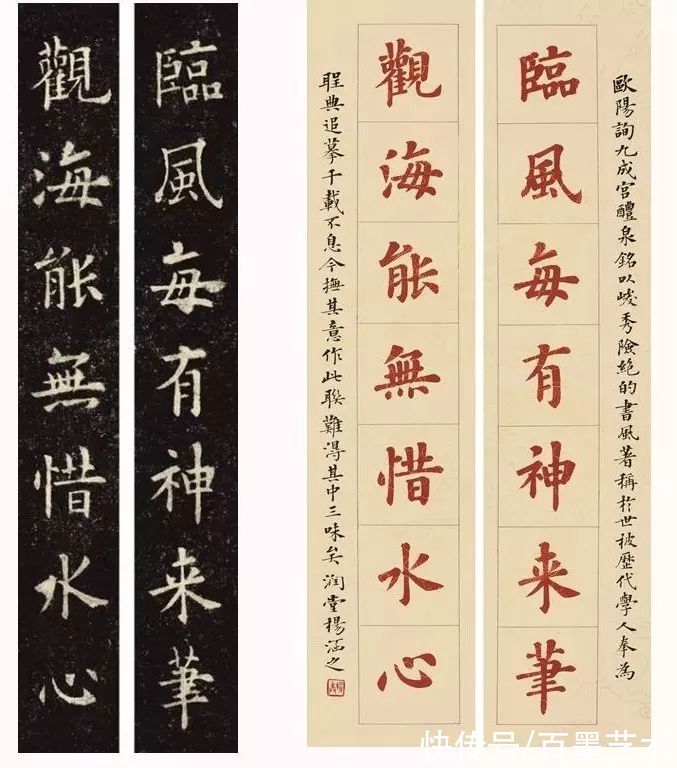 歐陽詢九成宮醴泉銘以峻秀險絕的書風著稱扵世被歷代學人奉為
臨風每有神来筆
觀海能無惜水心
聖典追摹千載不息今撫其意作此聯難得其中三味矣 润堂楊涵之
臨風每有神来筆
觀海能無惜水心
快传号/百墨艺术